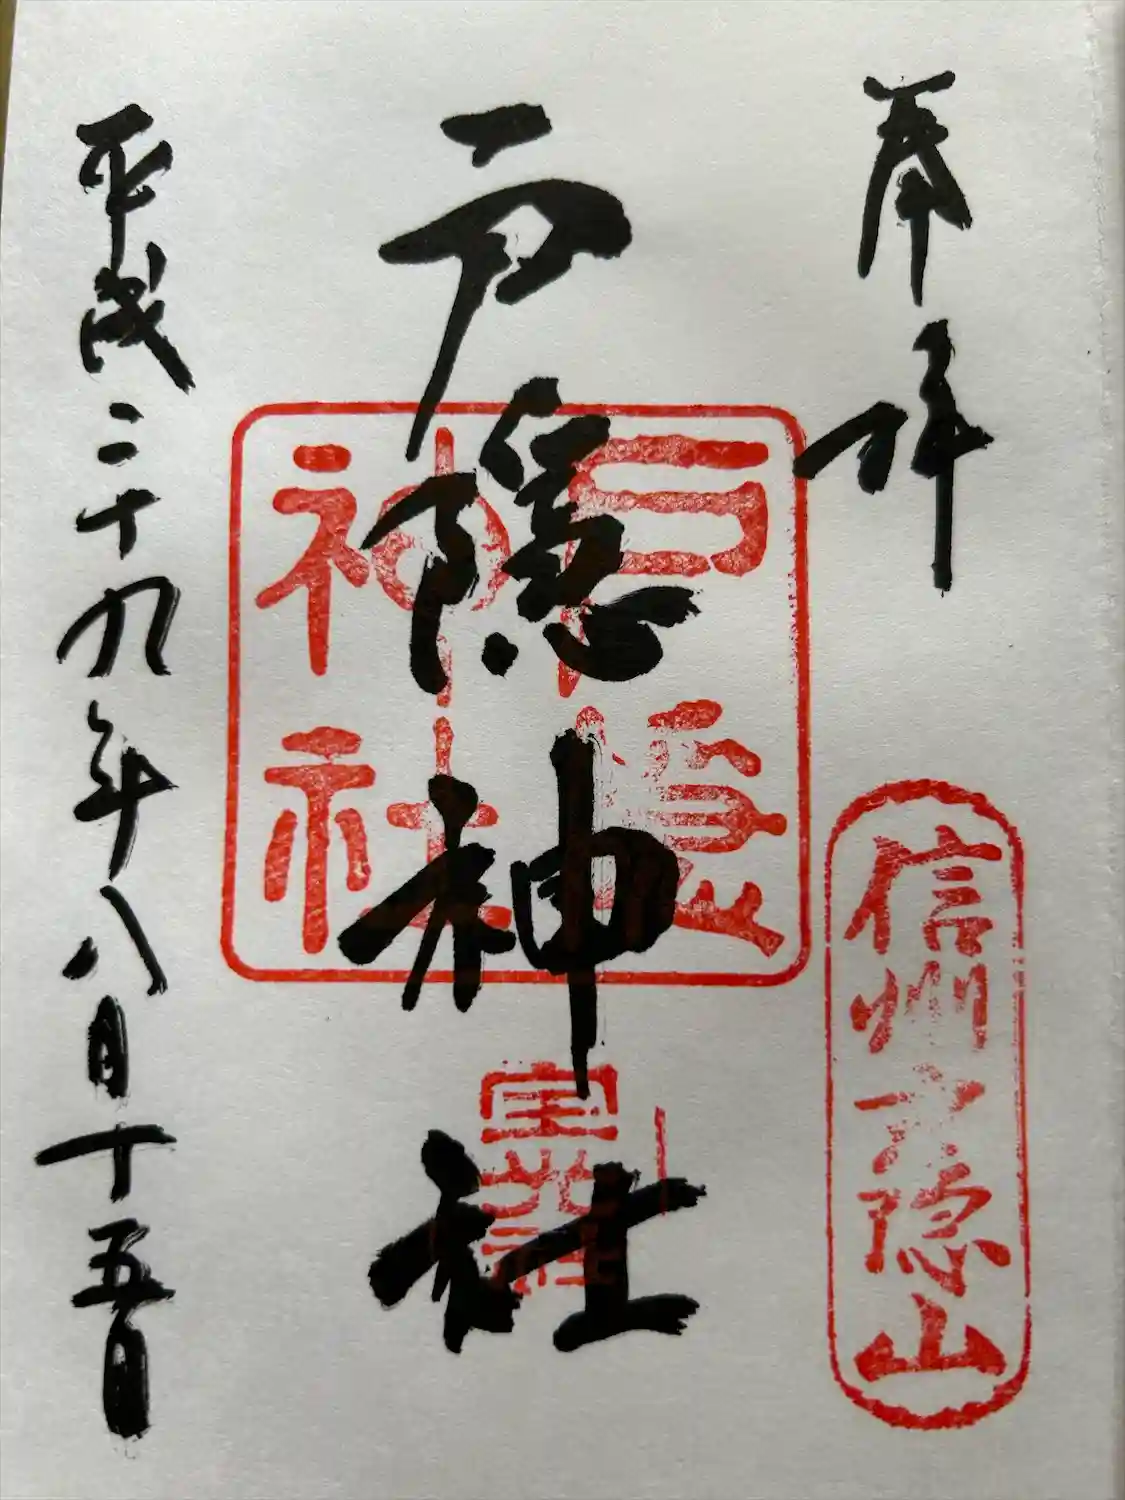 奉拝
信州戸隠山
戸隠神社
戸隠
神社
宝光社
平成二十九年八月十五日